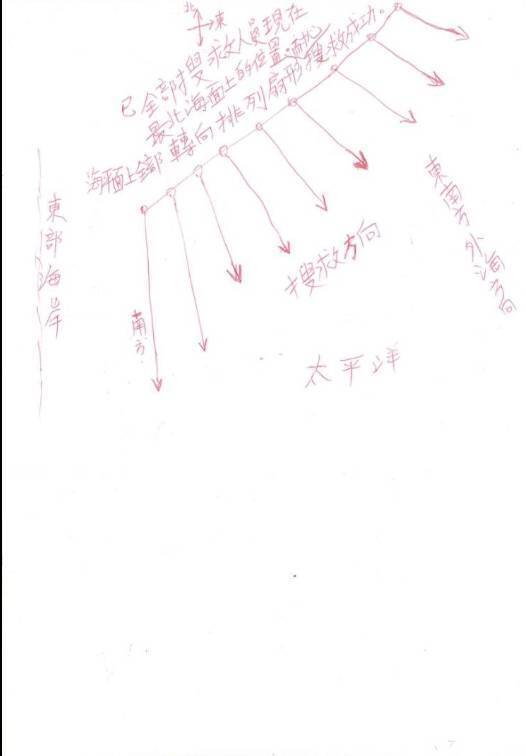 北
東
已全部搜救人員現在
最北海面上的位置,耐心
海平面上全部轉向排列扇形搜救成功。
東部海岸
南方
搜救方向
東南方外海方向
太平洋